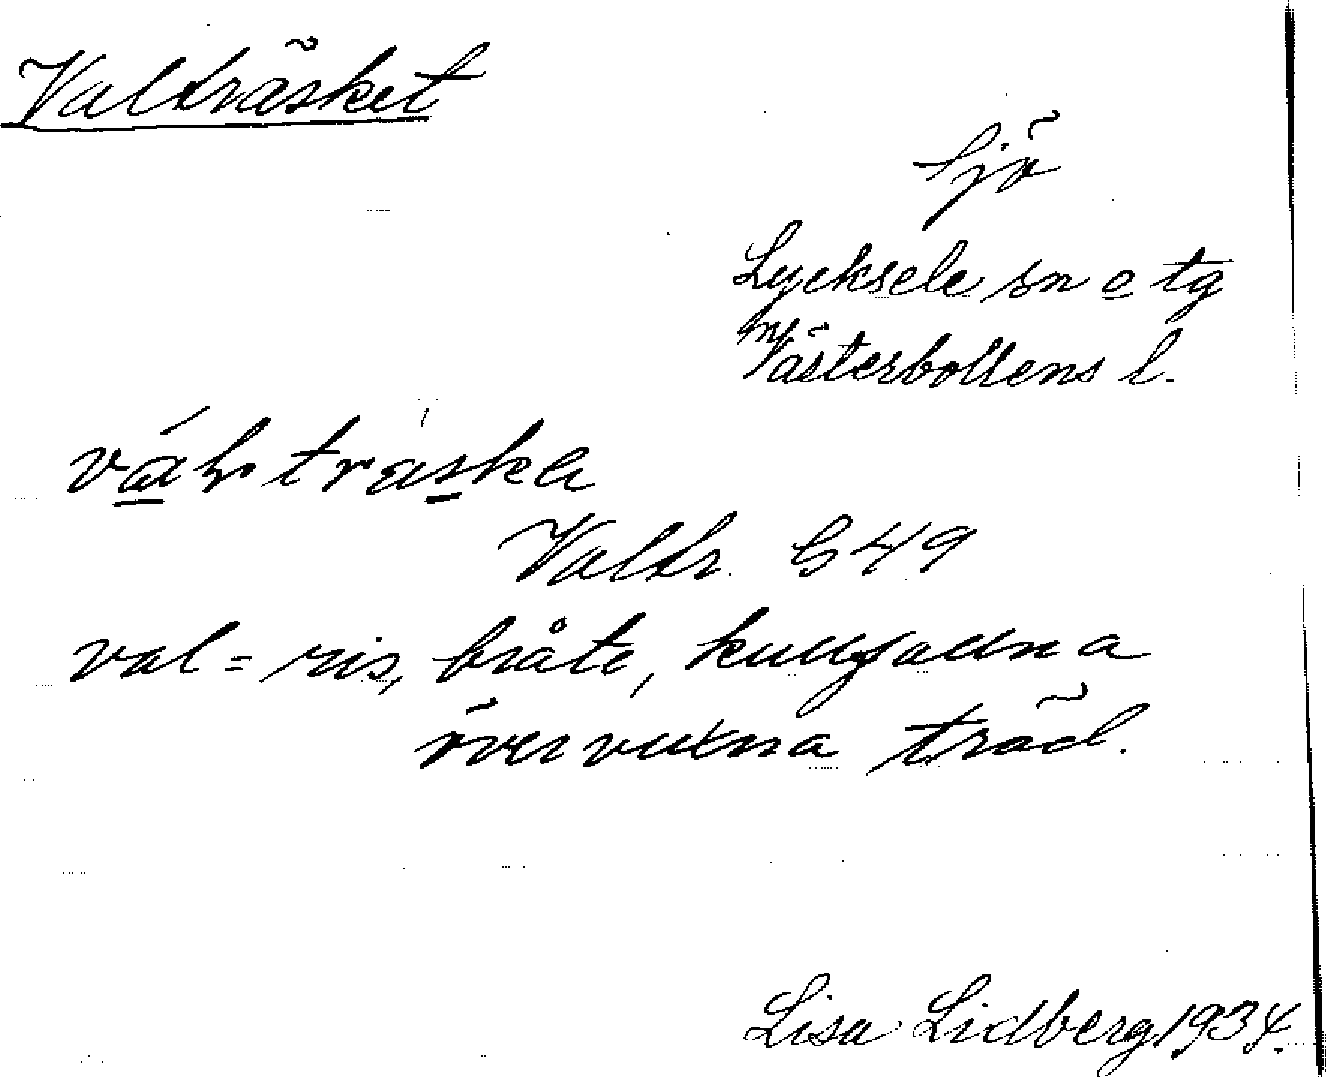 Valträsket
sjö
Lycksele sn o tg
Västerbottens l.
träska
Valtr. G49
val = ris, bråte, kullfallna
övervuxna träd.
Lisa Lidberg 1934.